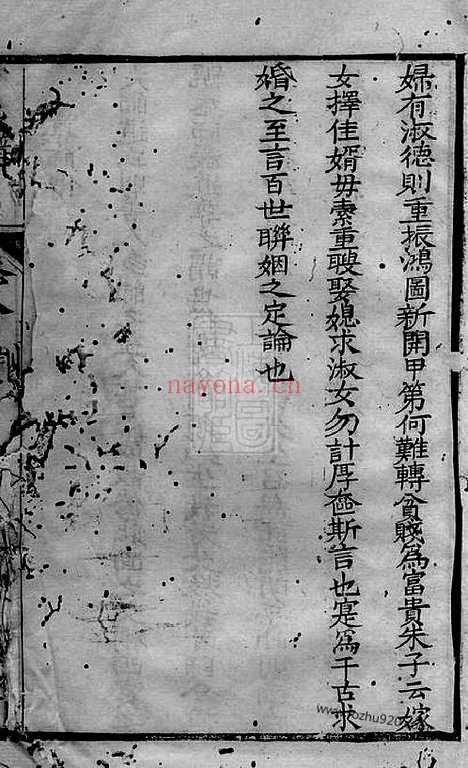 婦有淑德則重振鴻圖新開甲第何難轉貧賤為富貴朱子云嫁
女擇佳婿毋索重聘娶媳求淑女勿計厚奩斯言也寔為千古求
婚之至言百世聯姻之定論也
nayona.cn